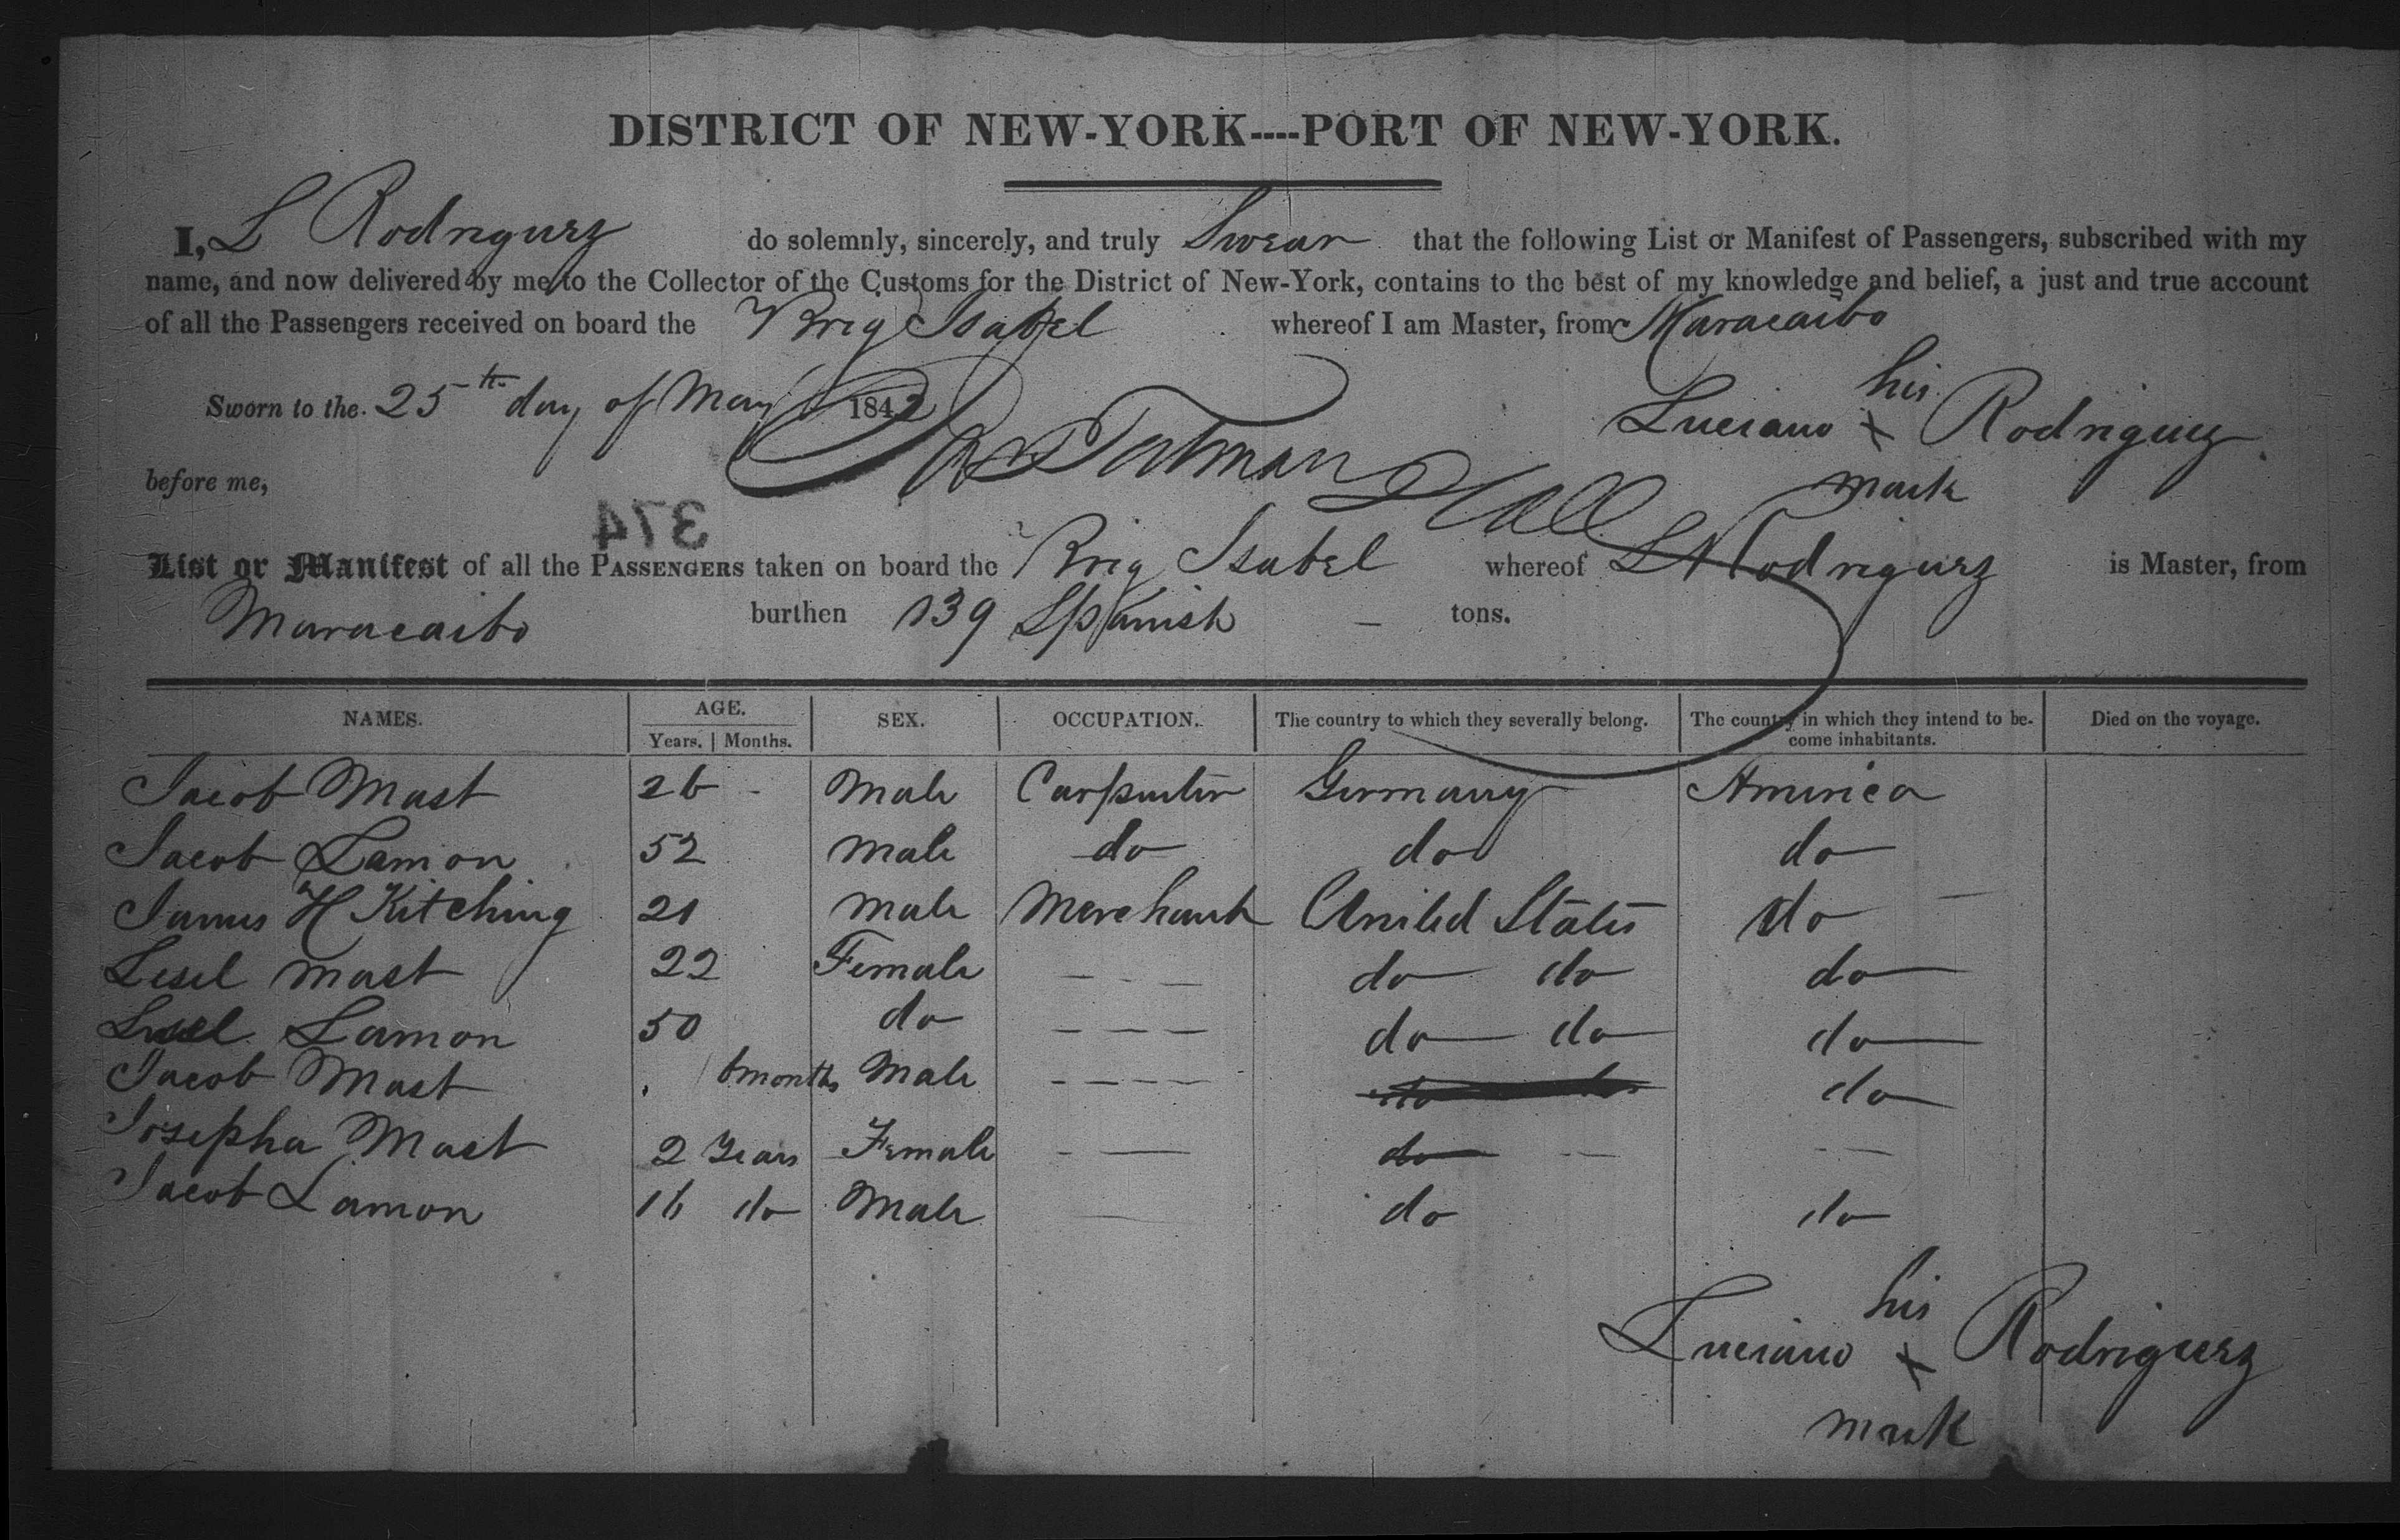 DISTRICT OF NEW-YORK----PORT OF NEW-YORK.
I, L Rodriguez do solemnly, sincerely, and truly Swear that the following List or Manifest of Passengers, subscribed with my
name, and now delivered by me to the Collector of the Customs for the District of New-York, contains to the best of my knowledge and belief, a just and true account
of all the Passengers received on board the Brig Isabel whereof I am Master, from Maracaibo
Sworn to the 25th day of May 1842
his
Luciano x Rodriguez
mark
before me,
Tatman Hall
374
List or Manifest of all the PASSENGERS taken on board the Brig Isabel whereof L Rodriguez is Master, from
Maracaibo burthen 139 Spanish tons.
NAMES. AGE. SEX. OCCUPATION. The country to which they severally belong. The country in which they intend to be- Died on the voyage.
Years. Months. come inhabitants.
Jacob Mast 26 - Male Carpenter Germany America
Jacob Lamon 52 Male do do do
James H Kitching 21 Male Merchant United States do -
Lesel Mast 22 Female - - - do do do
Lesel Lamon 50 do - - - do do do
Jacob Mast 6 months Male - - - - do do do
Josepha Mast 2 Years Female - - do - - - -
Jacob Lamon 16 do Male - do do
his
Luciano x Rodriguez
mark